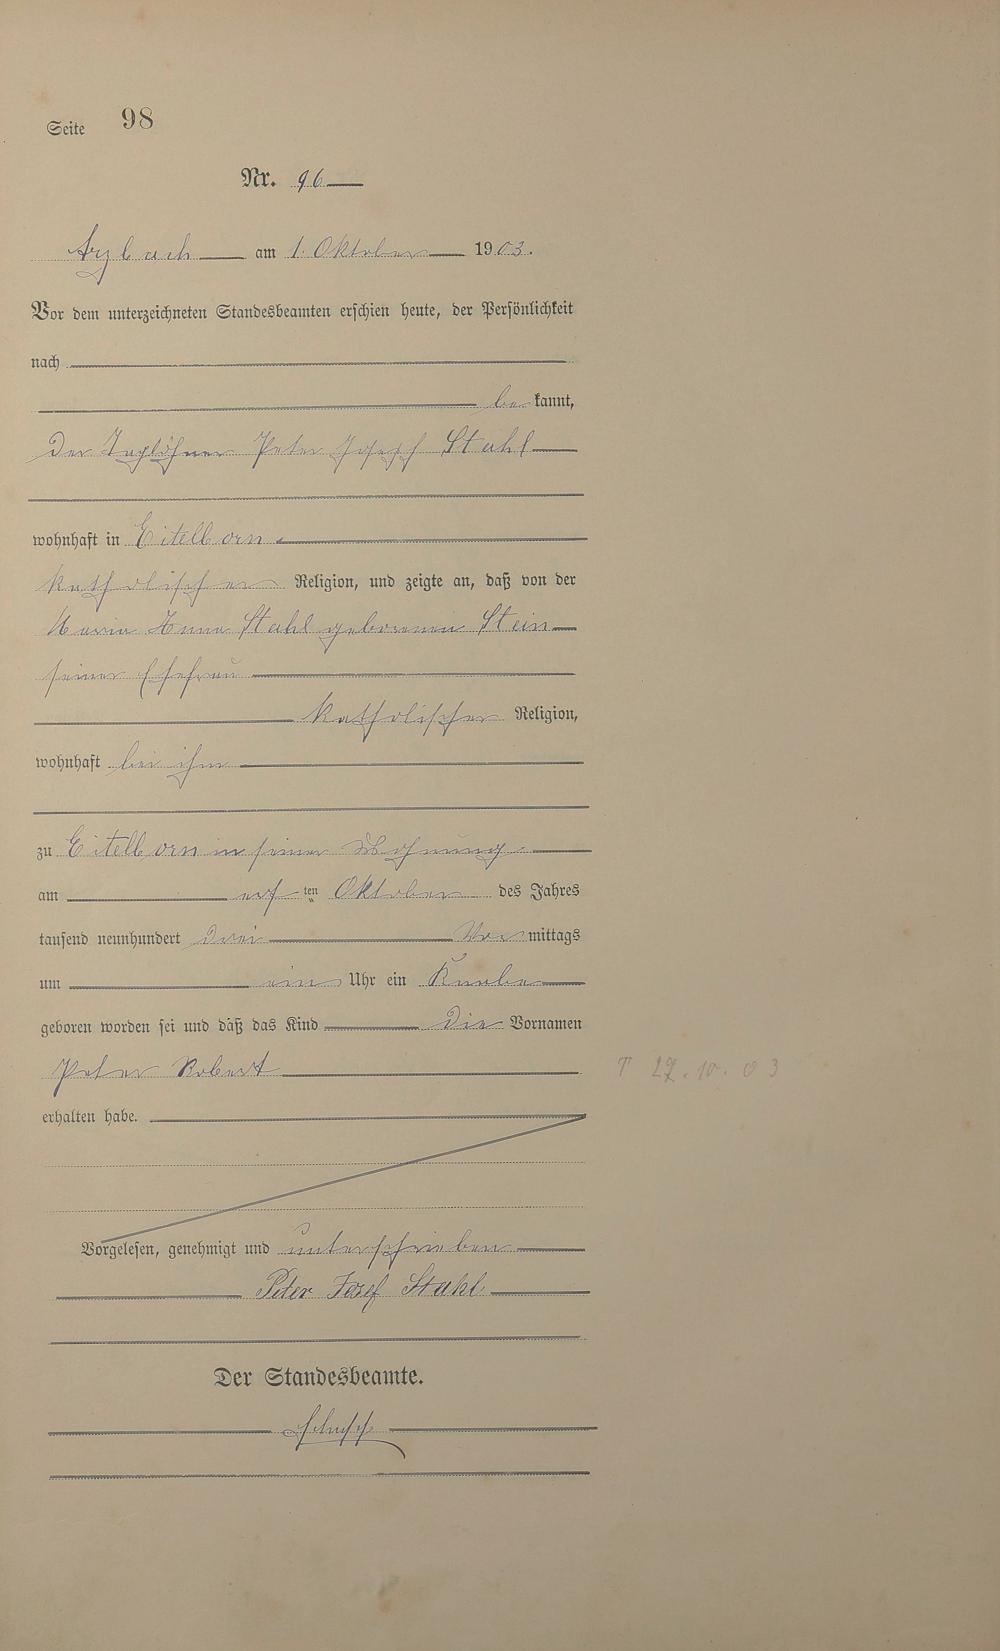 Seite 98
Nr. 96
Arzbach am 1. Oktober 1903.
Vor dem unterzeichneten Standesbeamten erschien heute, der Persönlichkeit
nach
be kannt,
der Taglöhner Peter Joseph Stahl
wohnhaft in Eitelborn
katholischer Religion, und zeigte an, daß von der
Maria Anna Stahl geborenen Stein
seiner Ehefrau
katholischer Religion,
wohnhaft bei ihm
zu Eitelborn in seiner Wohnung
am ersten Oktober des Jahres
tausend neunhundert drei Vormittags
um ein Uhr ein Knabe
geboren worden sei und daß das Kind die Vornamen
Peter Robert
27.10.03
erhalten habe.
Vorgelesen, genehmigt und unterschrieben
Peter Josef Stahl
Der Standesbeamte.